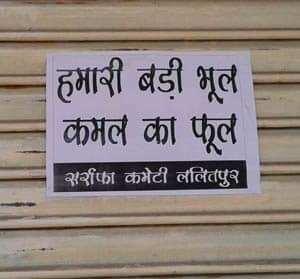 हमारी बड़ी भूल
कमल का फूल
सर्राफा कमेटी ललितपुर